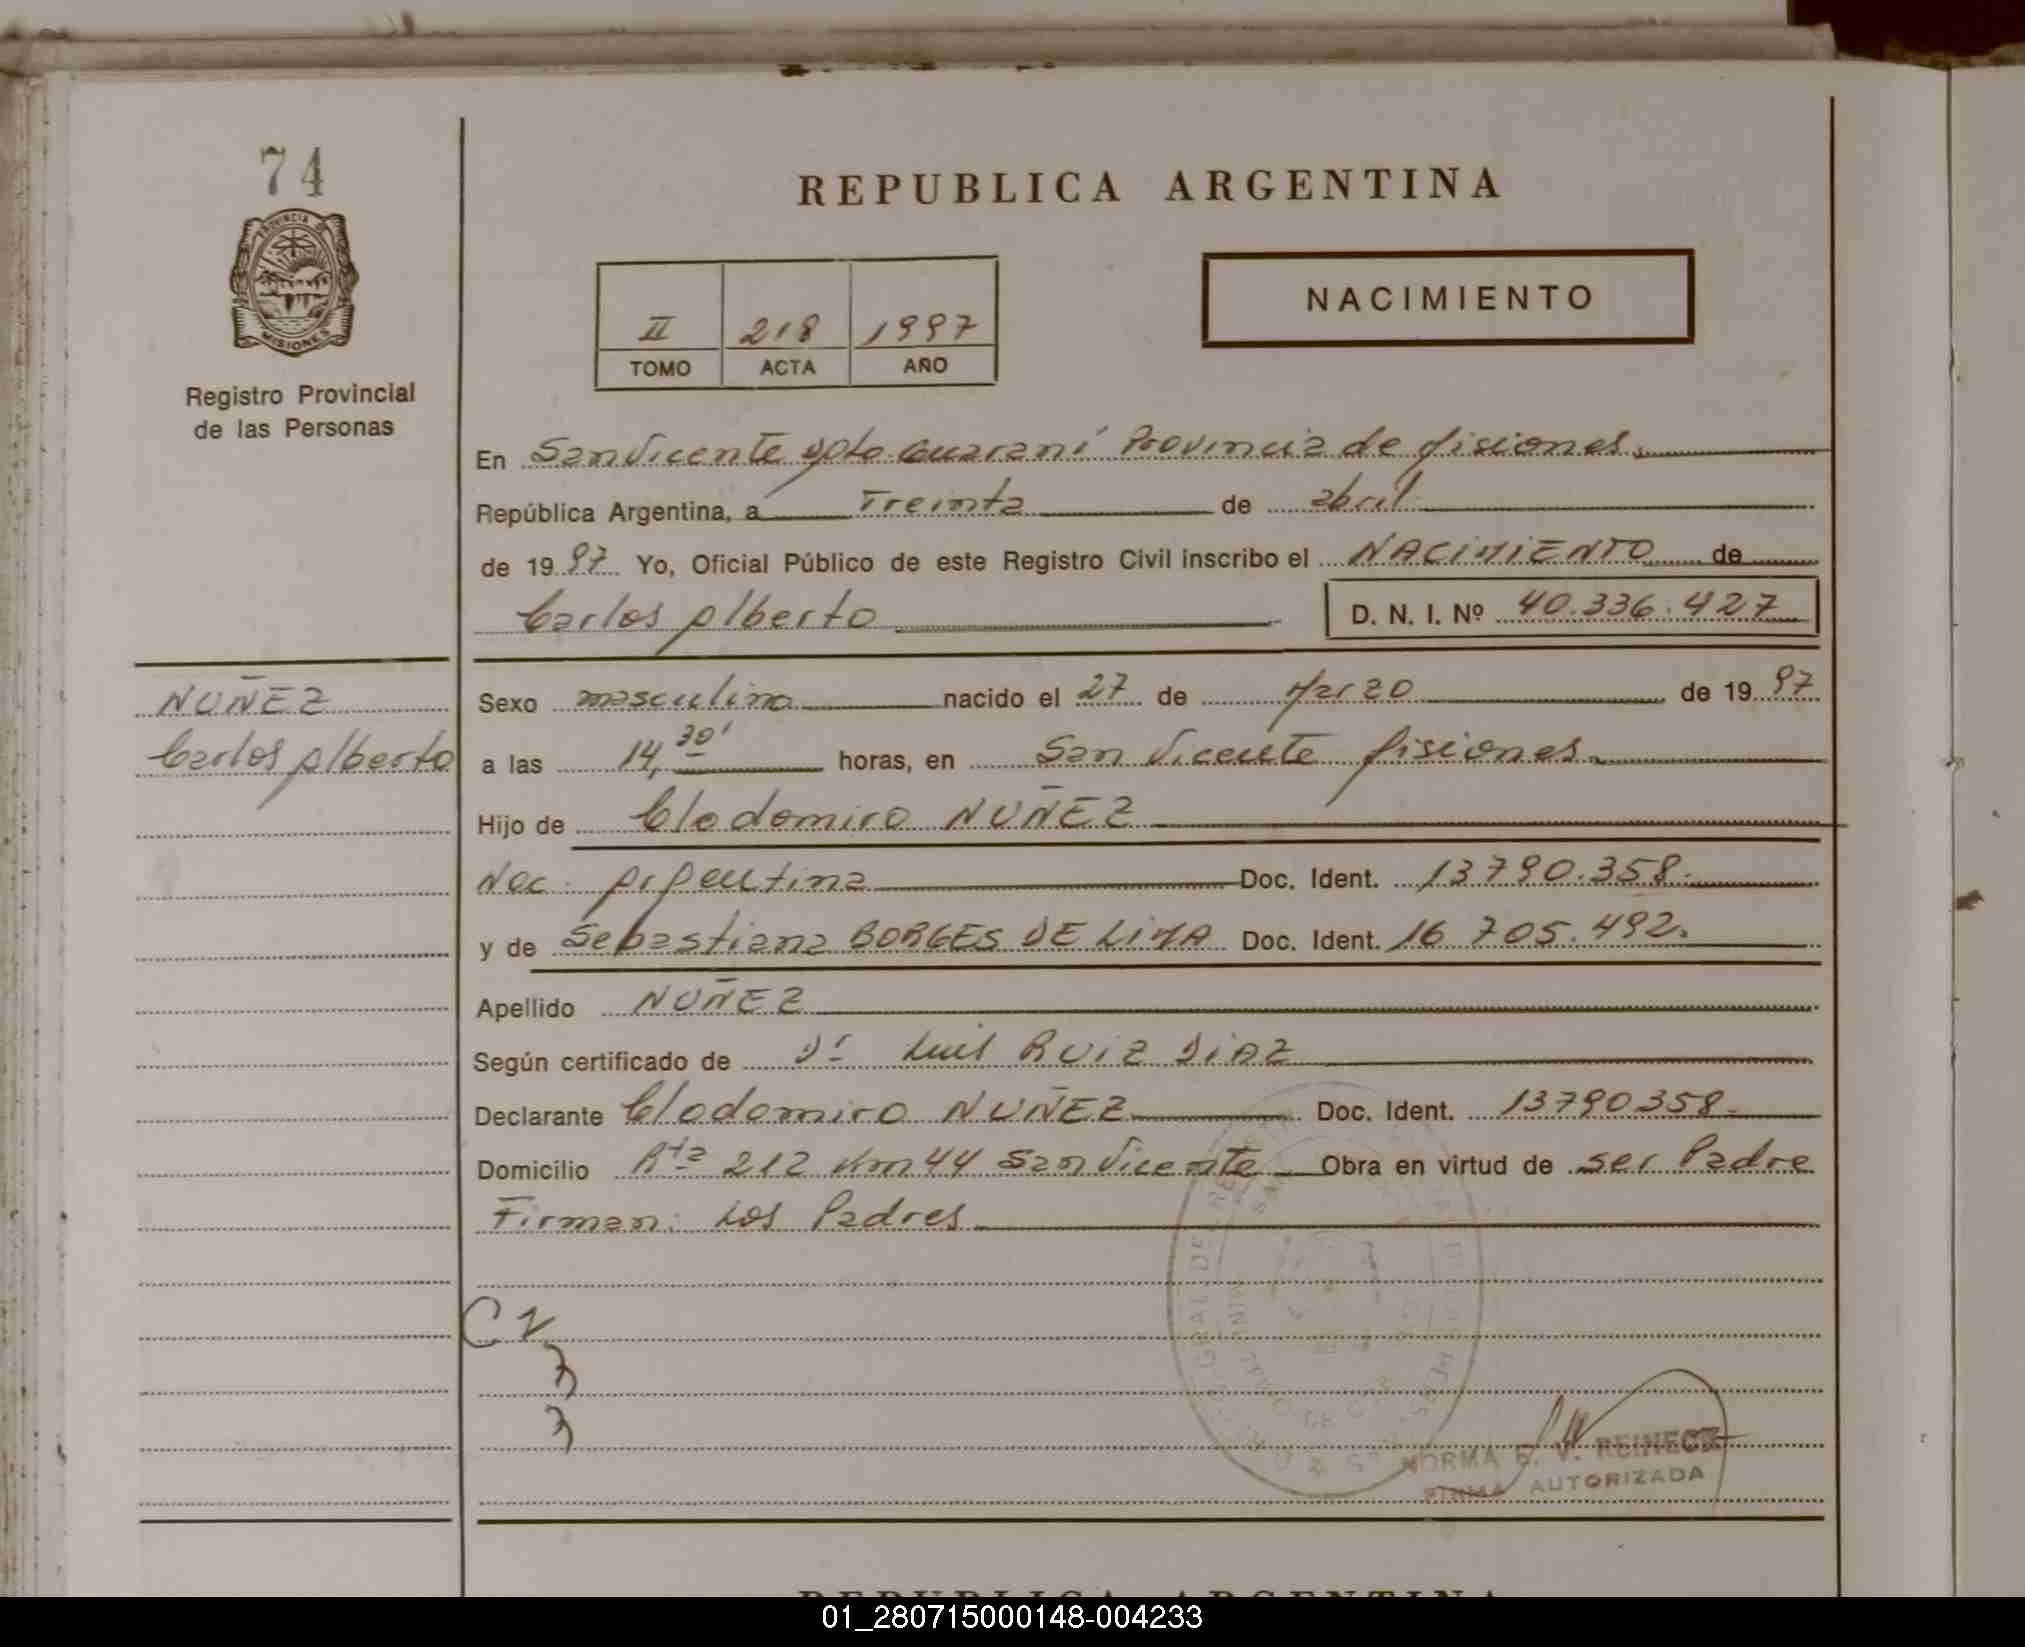 74
PROVINCIA
MISIONES
Registro Provincial
de las Personas
REPUBLICA ARGENTINA
II 218 1997
TOMO ACTA AÑO
NACIMIENTO
En San Vicente Dpto. Guaraní Provincia de Misiones.
República Argentina, a Treinta de abril
de 1997 Yo, Oficial Público de este Registro Civil inscribo el NACIMIENTO de
Carlos Alberto D. N. I. Nº 40.336.427
NUÑEZ
Carlos Alberto
Sexo masculino nacido el 27 de Marzo de 1997
a las 14,30' horas, en San Vicente Misiones.
Hijo de Clodomiro NUÑEZ
Nac. Argentina Doc. Ident. 13790.358.
y de Sebastiana BORGES DE LIMA Doc. Ident. 16 705.492.
Apellido NUÑEZ
Según certificado de Dr Luis RUIZ DIAZ
Declarante Clodomiro NUÑEZ Doc. Ident. 13790358.
Domicilio Rta 212 Km 44 San Vicente Obra en virtud de ser Padre
Firman: Los Padres
C N
NORMA E. V. REINECK
FIRMA AUTORIZADA
REPUBLICA ARGENTINA
01_280715000148-004233